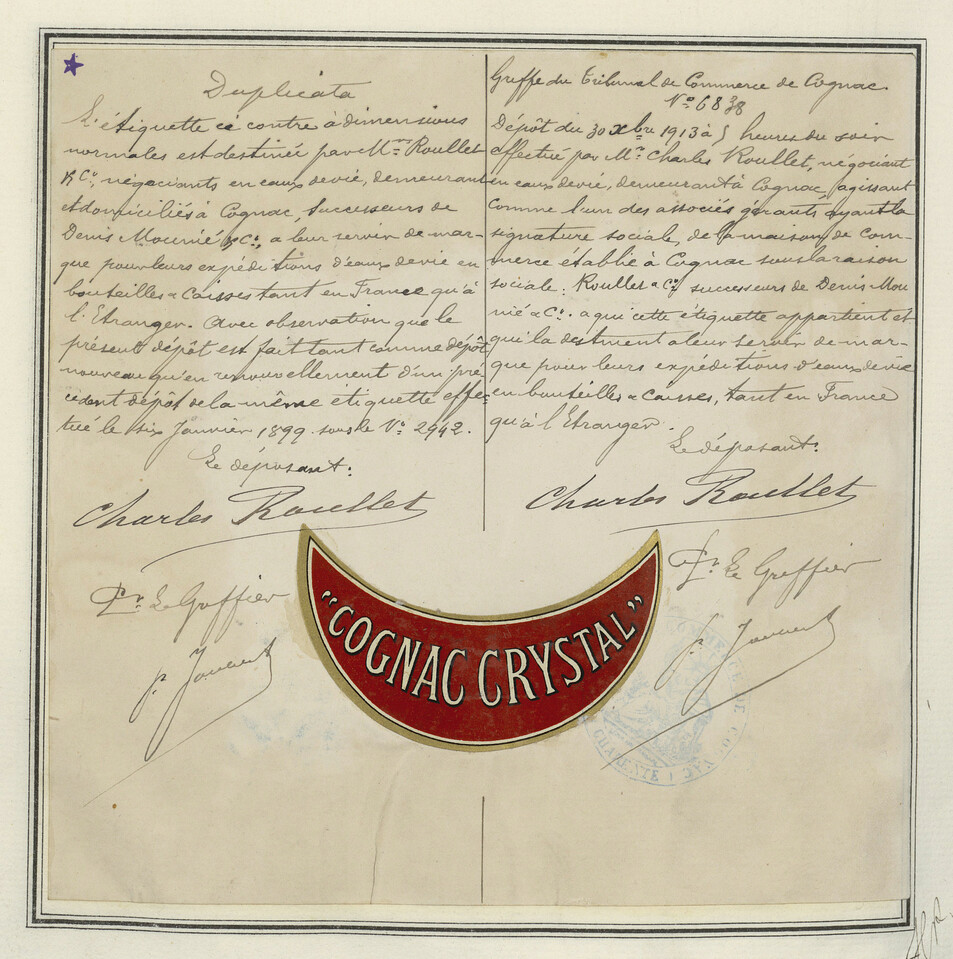 Duplicata
L'étiquette ci contre à dimensions
normales est destinée par Mrs Roullet
& Co, négociants en eaux de vie, demeurant
et domiciliés à Cognac, Successeurs de
Denis Mounié & Co, a leur servir de mar-
que pour leurs expéditions d'eaux de vie en
bouteilles & Caisses tant en France qu'à
l'Etranger. Avec observation que le
présent dépôt est fait tant comme dépôt
nouveau qu'en renouvellement d'un pré
cédent dépôt de la même étiquette effec
tué le six Janvier 1899 sous le No 2942.
Le déposant:
Charles Roullet
Pr Le Greffier
Greffe du Tribunal de Commerce de Cognac
No 6838
Dépôt du 30 Xbre 1913 à 5 heures du soir
effectué par Mr Charles Roullet, négociant
en eaux de vie, demeurant à Cognac, agissant
comme l'un des associés gérants ayant la
signature sociale, de la maison de com-
merce établie à Cognac sous la raison
sociale: Roullet & Co successeurs de Denis Mou
nié & Co. a qui cette étiquette appartient et
qui la destinent a leur servir de mar-
que pour leurs expéditions d'eaux de vie
en bouteilles & caisses, tant en France
qu'à l'Etranger.
Le déposant:
Charles Roullet
Pr Le Greffier
"COGNAC CRYSTAL"
COMMERCE DE COGNAC
CHARENTE